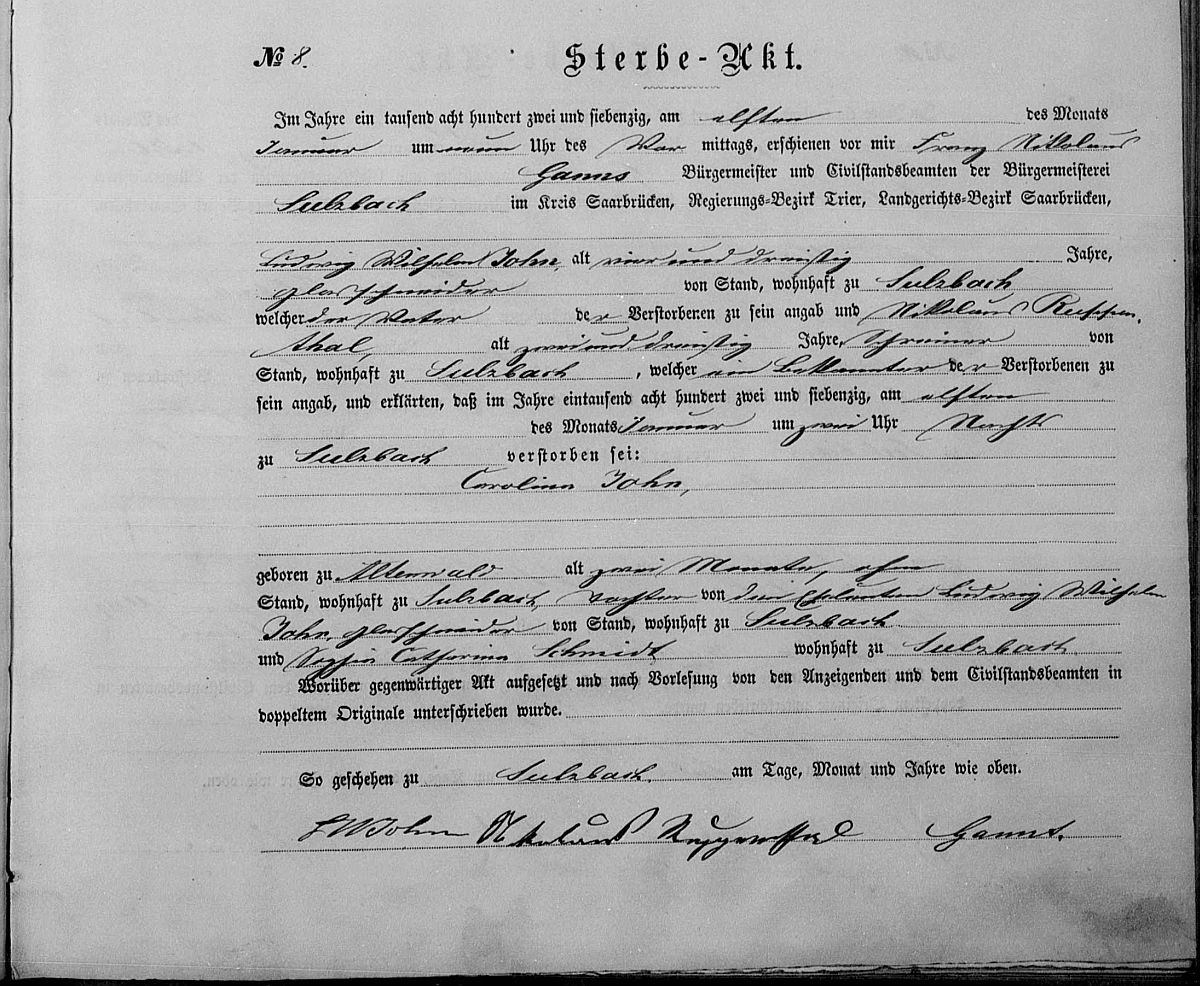 № 8. Sterbe-Akt.
Im Jahre ein tausend acht hundert zwei und siebenzig, am elften des Monats
Januar um neun Uhr des Vor mittags, erschienen vor mir Franz Nikolaus
Ganns Bürgermeister und Civilstandsbeamten der Bürgermeisterei
Sulzbach im Kreis Saarbrücken, Regierungs-Bezirk Trier, Landgerichts-Bezirk Saarbrücken,
Ludwig Wilhelm John, alt vier und dreissig Jahre,
Glasschneider von Stand, wohnhaft zu Sulzbach
welcher der Vater der Verstorbenen zu sein angab und Nikolaus
thal, alt zwei und dreissig Jahre, Schreiner von
Stand, wohnhaft zu Sulzbach, welcher ein Bekannter der Verstorbenen zu
sein angab, und erklärten, daß im Jahre eintausend acht hundert zwei und siebenzig, am elften
des Monats Januar um zwei Uhr Nachts
zu Sulzbach verstorben sei:
Carolina John,
geboren zu Altenwald alt zwei Monate, ohne
Stand, wohnhaft zu Sulzbach, Tochter von den Eheleuten Ludwig Wilhelm
John, Glasschneider von Stand, wohnhaft zu Sulzbach
und Sophia Catharina Schmidt wohnhaft zu Sulzbach
Worüber gegenwärtiger Akt aufgesetzt und nach Vorlesung von den Anzeigenden und dem Civilstandsbeamten in
doppeltem Originale unterschrieben wurde.
So geschehen zu Sulzbach. am Tage, Monat und Jahre wie oben.
LWJohn Nikolaus